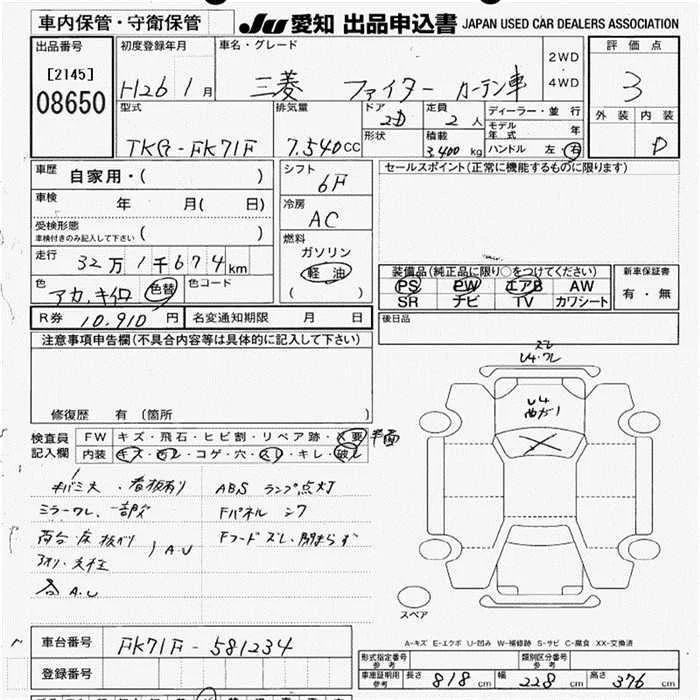 車内保管・守衛保管 JU 愛知 出品申込書 JAPAN USED CAR DEALERS ASSOCIATION
出品番号 初度登録年月 車名・グレード 2WD 評価点
[2145] H26 1月 三菱 ファイター カーテン車 4WD 3
08650 型式 排気量 ドア 2D 定員 2人 ディーラー・並行 外装 内装
モデル年式 年
TKG-FK71F 7.540cc 形状 積載 3,400kg ハンドル 左・右 D
車歴 自家用・( ) シフト 6F セールスポイント(正常に機能するものに限ります)
車検 年 月( 日) 冷房 AC
受検形態 ( )
車検付きのみ記入して下さい
燃料
走行 32万1千674km ガソリン
軽油 装備品(純正品に限り○をつけてください) 新車保証書
色 アカ、キイロ 色替 色コード ( ) PS PW エアB AW 有・無
SR ナビ TV カワシート
R券 10,910円 名変通知期限 月 日 後日品
注意事項申告欄(不具合内容等は具体的に記入して下さい)
ズレ
U4・ワレ
U4
曲ガリ
修復歴 有 (箇所 )
検査員 FW キズ・飛石・ヒビ割・リペア跡・X要
記入欄 内装 キズ・ヨゴレ・コゲ・穴・スレ・キレ・破レ
キバミ大 ・看板有り ABS ランプ点灯
ミラーワレ、一部欠 Fパネル
荷台 床 板 Fフードズレ、閉まらず
アオリ・支柱 A.U
A.U
スペア
A-キズ E-エクボ U-凹み W-補修跡 S-サビ C-腐食 XX-交換済
車台番号 FK71F-581234
形式指定番号 参考 類別区分番号 参考
登録番号 車庫証明用 参考 長さ 818cm 幅 228cm 高さ 376cm